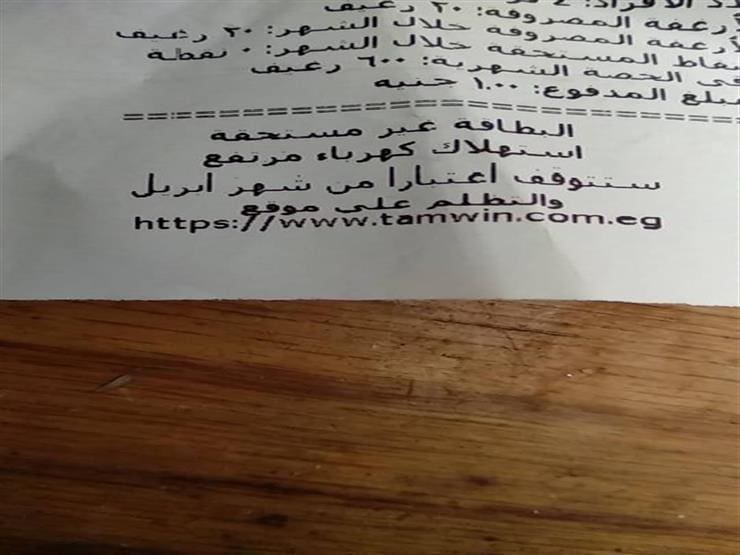 الأفراد:
الأرغفة المصروفة: ٢٠ رغيف
الأرغفة المصروفة خلال الشهر: ٢٠ رغيف
المستحقة خلال الشهر: ٠ نقطة
الحصة الشهرية: ٦٠٠ رغيف
مبلغ المدفوع: ١.٠٠ جنيه
==============================
البطاقة غير مستحقه
استهلاك كهرباء مرتفع
ستتوقف اعتبارا من شهر ابريل
والتظلم على موقع
https://www.tamwin.com.eg